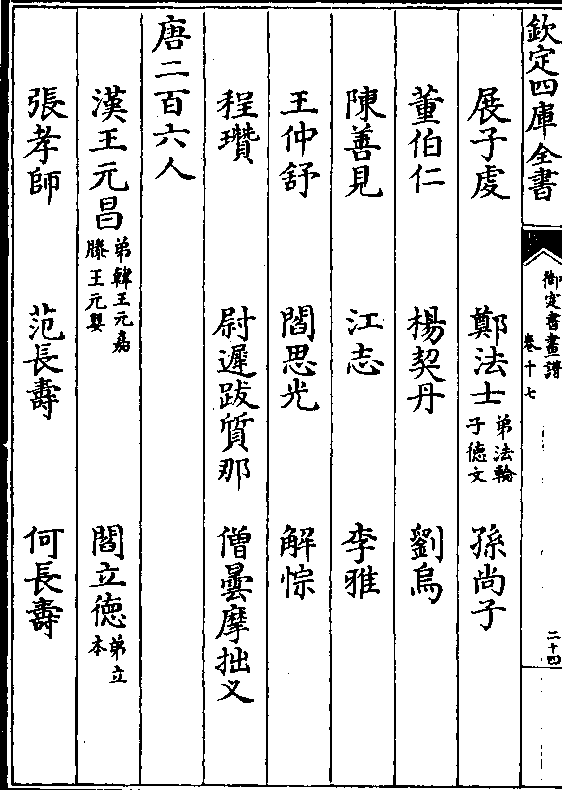 欽定四庫全書
御定書畫譜
卷十七
二十四
展子虔 鄭法士 弟法輪 子德文 孫尚子
董伯仁 楊契丹 劉烏
陳善見 江志 李雅
王仲舒 閻思光 解悰
程瓚 尉遲跋質那 僧曇摩拙义
唐二百六人
漢王元昌 弟韓王元嘉 滕王元嬰 閻立德 弟立本
張孝師 范長壽 何長壽